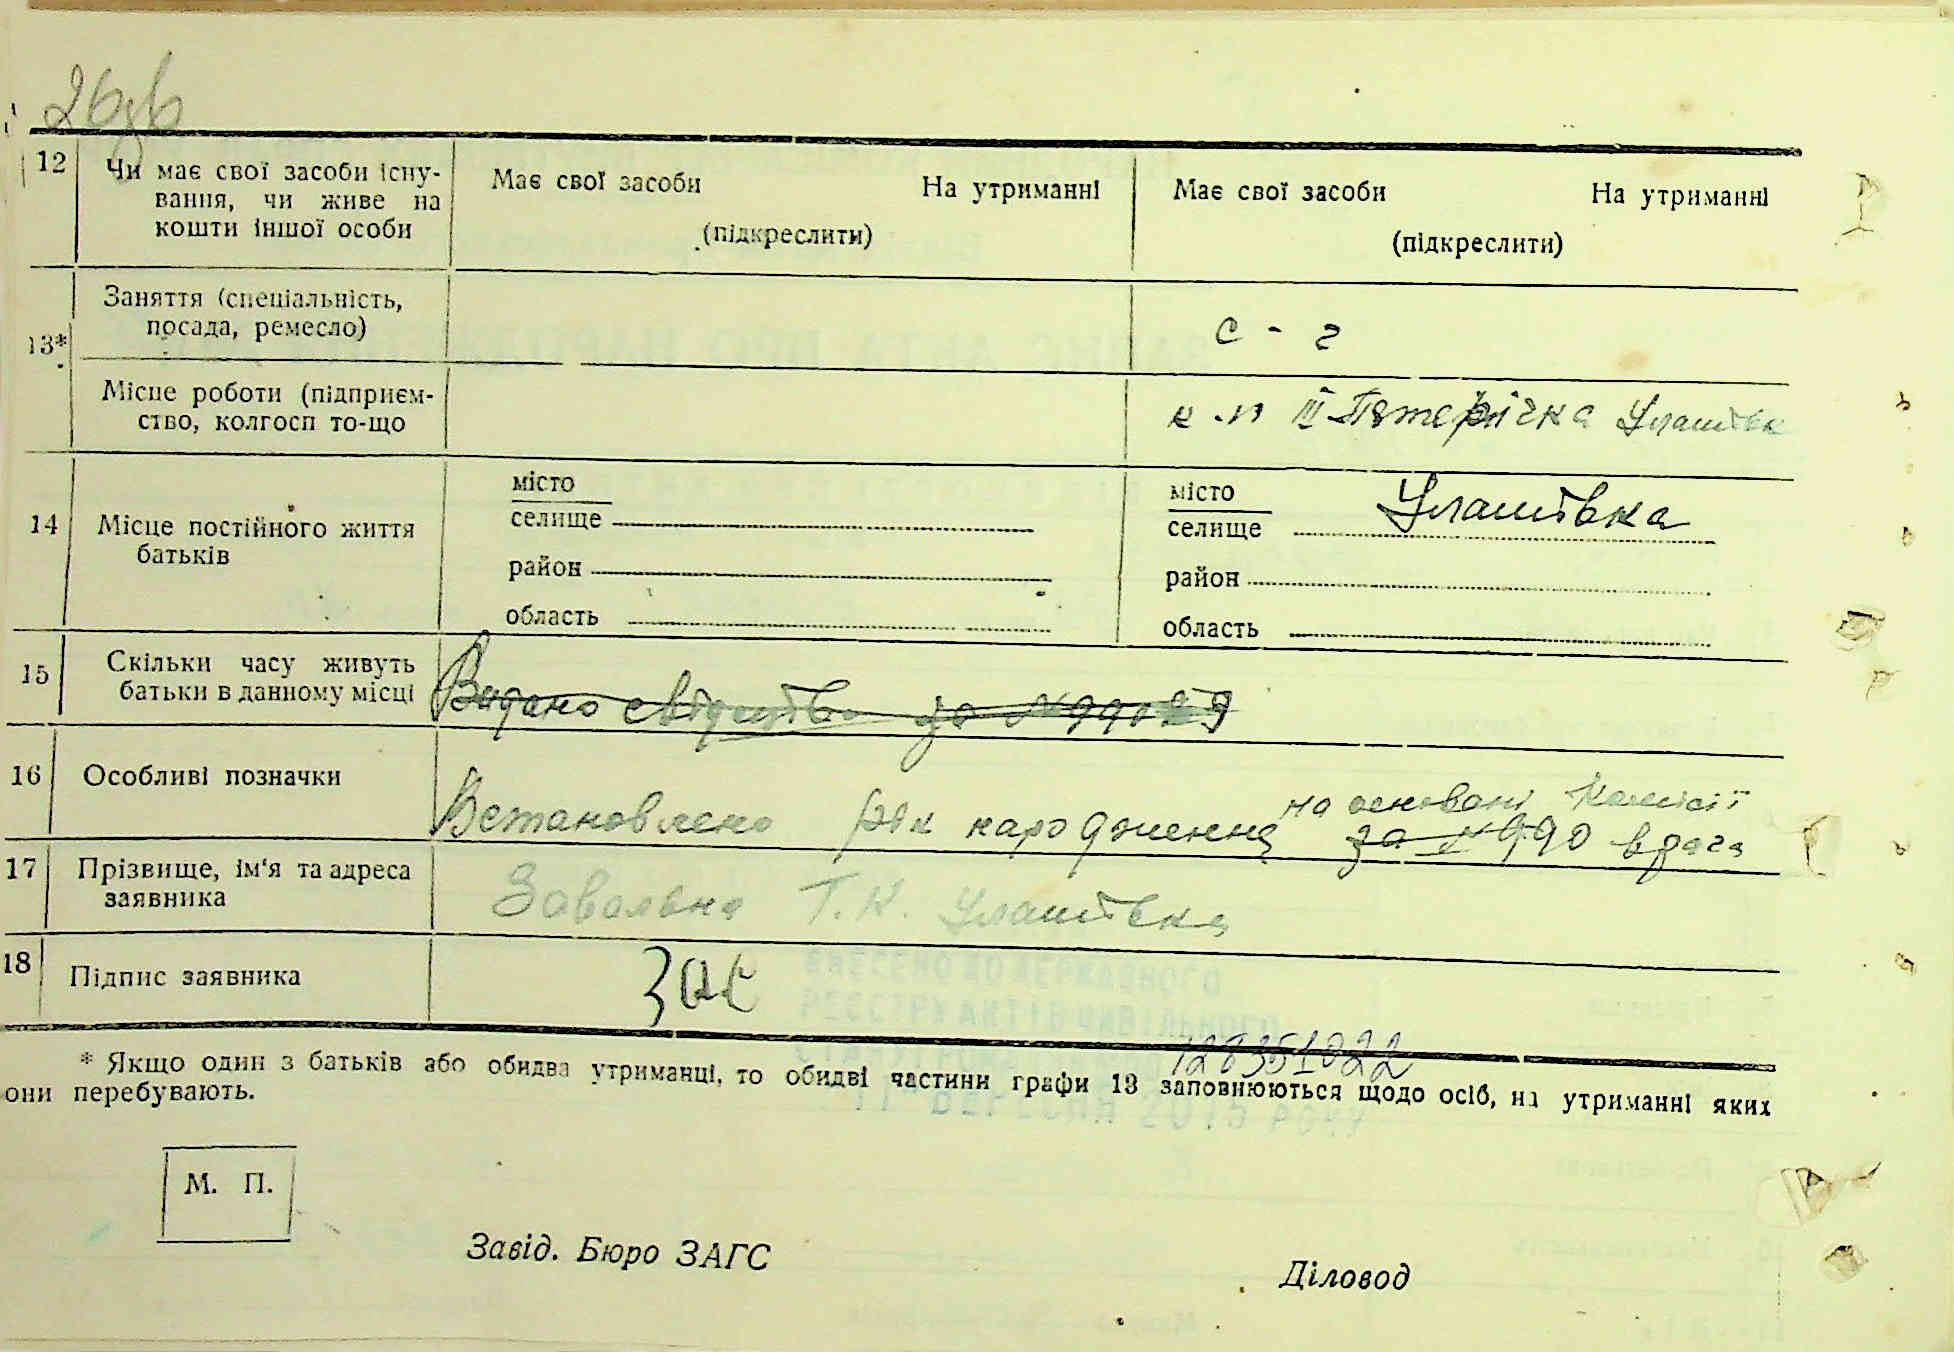 26зв
12 Чи має свої засоби існу-
вання, чи живе на
кошти іншої особи
Має свої засоби На утриманні
(підкреслити)
Має свої засоби На утриманні
(підкреслити)
13*
Заняття (спеціальність,
посада, ремесло)
с - г
Місце роботи (підприєм-
ство, колгосп то-що
к-п ІІІ Пятерічка Улашівк
14 Місце постійного життя
батьків
місто
селище
район
область
місто
селище Улашівка
район
область
15 Скільки часу живуть
батьки в данному місці
Видано свідотство за №99029
16 Особливі позначки
на основані Комісії
Встановлено рік народження за №990 врача
17 Прізвище, ім'я та адреса
заявника
Завальна Т. К. Улашівка
18 Підпис заявника
Зав
ВНЕСЕНО ДО ДЕРЖАВНОГО
РЕЄСТРУ АКТІВ ЦИВІЛЬНОГО
СТАНУ ГРОМАДЯН
"11" ВЕРЕСНЯ 2015 РОКУ
* Якщо один з батьків або обидва утриманці, то обидві частини графи 13 заповнюються щодо осіб, на утриманні яких
они перебувають.
М. П.
Завід. Бюро ЗАГС
Діловод